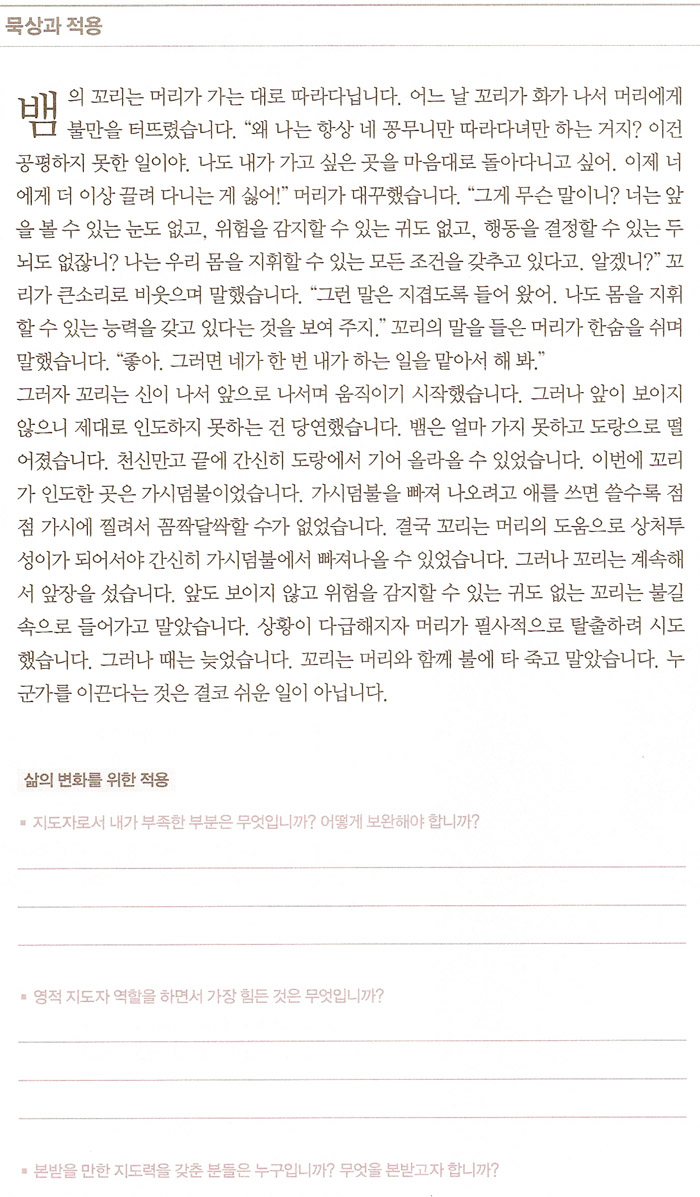 묵상과 적용
뱀의 꼬리는 머리가 가는 대로 따라다닙니다. 어느 날 꼬리가 화가 나서 머리에게
불만을 터뜨렸습니다. “왜 나는 항상 네 꽁무니만 따라다녀만 하는 거지? 이건
공평하지 못한 일이야. 나도 내가 가고 싶은 곳을 마음대로 돌아다니고 싶어. 이제 너
에게 더 이상 끌려 다니는 게 싫어!” 머리가 대꾸했습니다. “그게 무슨 말이니? 너는 앞
을 볼 수 있는 눈도 없고, 위험을 감지할 수 있는 귀도 없고, 행동을 결정할 수 있는 두
뇌도 없잖니? 나는 우리 몸을 지휘할 수 있는 모든 조건을 갖추고 있다고. 알겠니?” 꼬
리가 큰소리로 비웃으며 말했습니다. “그런 말은 지겹도록 들어 왔어. 나도 몸을 지휘
할 수 있는 능력을 갖고 있다는 것을 보여 주지.” 꼬리의 말을 들은 머리가 한숨을 쉬며
말했습니다. “좋아. 그러면 네가 한 번 내가 하는 일을 맡아서 해 봐.”
그러자 꼬리는 신이 나서 앞으로 나서며 움직이기 시작했습니다. 그러나 앞이 보이지
않으니 제대로 인도하지 못하는 건 당연했습니다. 뱀은 얼마 가지 못하고 도랑으로 떨
어졌습니다. 천신만고 끝에 간신히 도랑에서 기어 올라올 수 있었습니다. 이번에 꼬리
가 인도한 곳은 가시덤불이었습니다. 가시덤불을 빠져 나오려고 애를 쓰면 쓸수록 점
점 가시에 찔려서 꼼짝달싹할 수가 없었습니다. 결국 꼬리는 머리의 도움으로 상처투
성이가 되어서야 간신히 가시덤불에서 빠져나올 수 있었습니다. 그러나 꼬리는 계속해
서 앞장을 섰습니다. 앞도 보이지 않고 위험을 감지할 수 있는 귀도 없는 꼬리는 불길
속으로 들어가고 말았습니다. 상황이 다급해지자 머리가 필사적으로 탈출하려 시도
했습니다. 그러나 때는 늦었습니다. 꼬리는 머리와 함께 불에 타 죽고 말았습니다. 누
군가를 이끈다는 것은 결코 쉬운 일이 아닙니다.
삶의 변화를 위한 적용
▪ 지도자로서 내가 부족한 부분은 무엇입니까? 어떻게 보완해야 합니까?
▪ 영적 지도자 역할을 하면서 가장 힘든 것은 무엇입니까?
▪ 본받을 만한 지도력을 갖춘 분들은 누구입니까? 무엇을 본받고자 합니까?